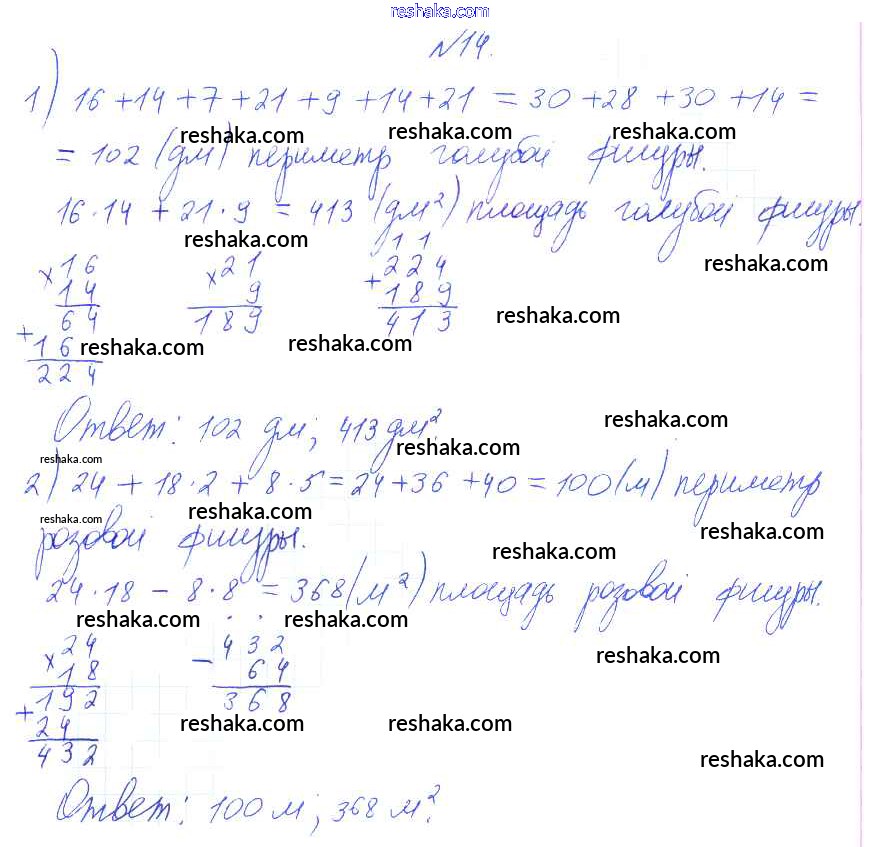 reshaka.com
№14.
1) 16 + 14 + 7 + 21 + 9 + 14 + 21 = 30 + 28 + 30 + 14 =
= 102 (дм) периметр голубой фигуры.
reshaka.com reshaka.com reshaka.com
16 · 14 + 21 · 9 = 413 (дм²) площадь голубой фигуры.
reshaka.com reshaka.com
1 1
× 16 × 21 + 224
14 9 189
64 189 413
reshaka.com
+ 16
reshaka.com reshaka.com
224
Ответ: 102 дм; 413 дм².
reshaka.com reshaka.com
reshaka.com
2) 24 + 18 · 2 + 8 · 5 = 24 + 36 + 40 = 100 (м) периметр
reshaka.com reshaka.com reshaka.com
розовой фигуры.
reshaka.com
24 · 18 – 8 · 8 = 368 (м²) площадь розовой фигуры.
reshaka.com reshaka.com reshaka.com
× 24 – 432
18 64
192 368
+ 24
reshaka.com reshaka.com
432
reshaka.com
Ответ: 100 м; 368 м².